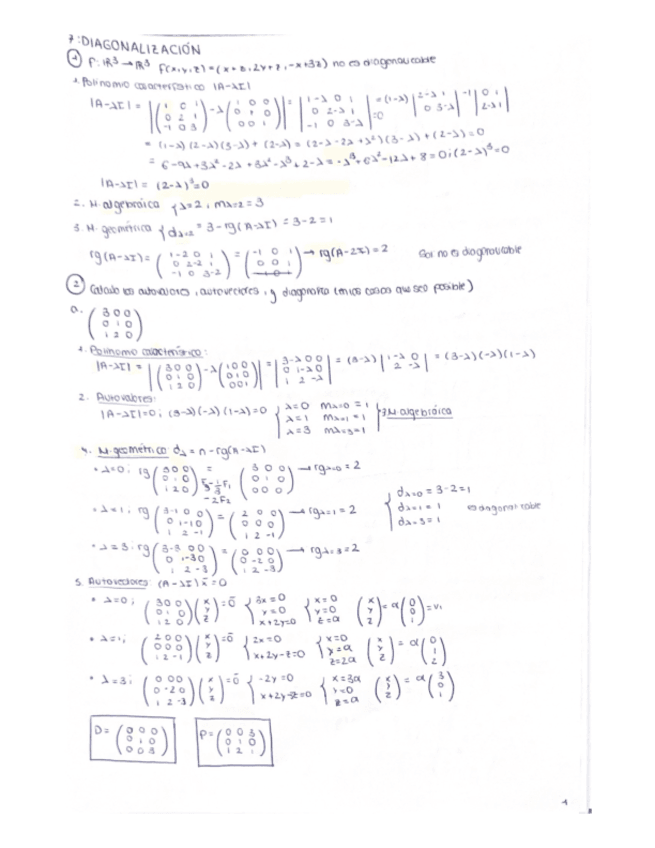 7: DIAGONALIZACIÓN
① f: ℝ³ → ℝ³ f(x,y,z) = (x+z, 2y+z, -x+3z) no es diagonalizable
1. Polinomio característico |A-λI|
|A-λI| = |(1 0 1; 0 2 1; -1 0 3) - λ(1 0 0; 0 1 0; 0 0 1)| = |1-λ 0 1; 0 2-λ 1; -1 0 3-λ| = (1-λ) |2-λ 1; 0 3-λ| -1 |0 1; 2-λ 1| = 0
= (1-λ)(2-λ)(3-λ) + (2-λ) = (2-λ-2λ+λ²)(3-λ) + (2-λ) = 0
= 6-9λ+3λ²-2λ+3λ²-λ³+2-λ = -λ³+6λ²-12λ+8 = 0; (2-λ)³ = 0
|A-λI| = (2-λ)³ = 0
2. M. algebráica { λ=2, mλ=2 = 3
3. M. geométrica { dλ=2 = 3 - rg(A-λI) = 3-2 = 1
rg(A-λI) = (1-2 0 1; 0 2-2 1; -1 0 3-2) = (-1 0 1; 0 0 1; -1 0 1) → rg(A-2I) = 2 no es diagonalizable
② Calcula los autovalores, autovectores, y diagonaliza (en los casos que sea posible)
a. (3 0 0; 0 1 0; 1 2 0)
1. Polinomio característico:
|A-λI| = |(3 0 0; 0 1 0; 1 2 0) - λ(1 0 0; 0 1 0; 0 0 1)| = |3-λ 0 0; 0 1-λ 0; 1 2 -λ| = (3-λ) |1-λ 0; 2 -λ| = (3-λ)(-λ)(1-λ)
2. Autovalores:
|A-λI| = 0; (3-λ)(-λ)(1-λ) = 0 { λ=0 mλ=0 = 1; λ=1 mλ=1 = 1; λ=3 mλ=3 = 1 } 3. M algebráica
4. M. geométrica dλ = n - rg(A-λI)
• λ=0; rg(3 0 0; 0 1 0; 1 2 0) = (3 0 0; 0 1 0; 0 0 0) → rgλ=0 = 2
F₃-⅓F₁
-2F₂
• λ=1; rg(3-1 0 0; 0 1-1 0; 1 2 -1) = (2 0 0; 0 0 0; 1 2 -1) → rgλ=1 = 2
{ dλ=0 = 3-2 = 1; dλ=1 = 1; dλ=3 = 1 es diagonalizable
• λ=3; rg(3-3 0 0; 0 1-3 0; 1 2 -3) = (0 0 0; 0 -2 0; 1 2 -3) → rgλ=3 = 2
5. Autovectores: (A-λI) x̄ = 0
• λ=0; (3 0 0; 0 1 0; 1 2 0)(x; y; z) = 0̄ { 3x=0; y=0; x+2y=0 { x=0; y=0; z=α (x; y; z) = α(0; 0; 1) = v₁
• λ=1; (2 0 0; 0 0 0; 1 2 -1)(x; y; z) = 0̄ { 2x=0; x+2y-z=0 { x=0; y=α; z=2α (x; y; z) = α(0; 1; 2)
• λ=3; (0 0 0; 0 -2 0; 1 2 -3)(x; y; z) = 0̄ { -2y=0; x+2y-z=0 { x=3α; y=0; z=α (x; y; z) = α(3; 0; 1)
D = (0 0 0; 0 1 0; 0 0 3) P = (0 0 3; 0 1 0; 1 2 1)
1